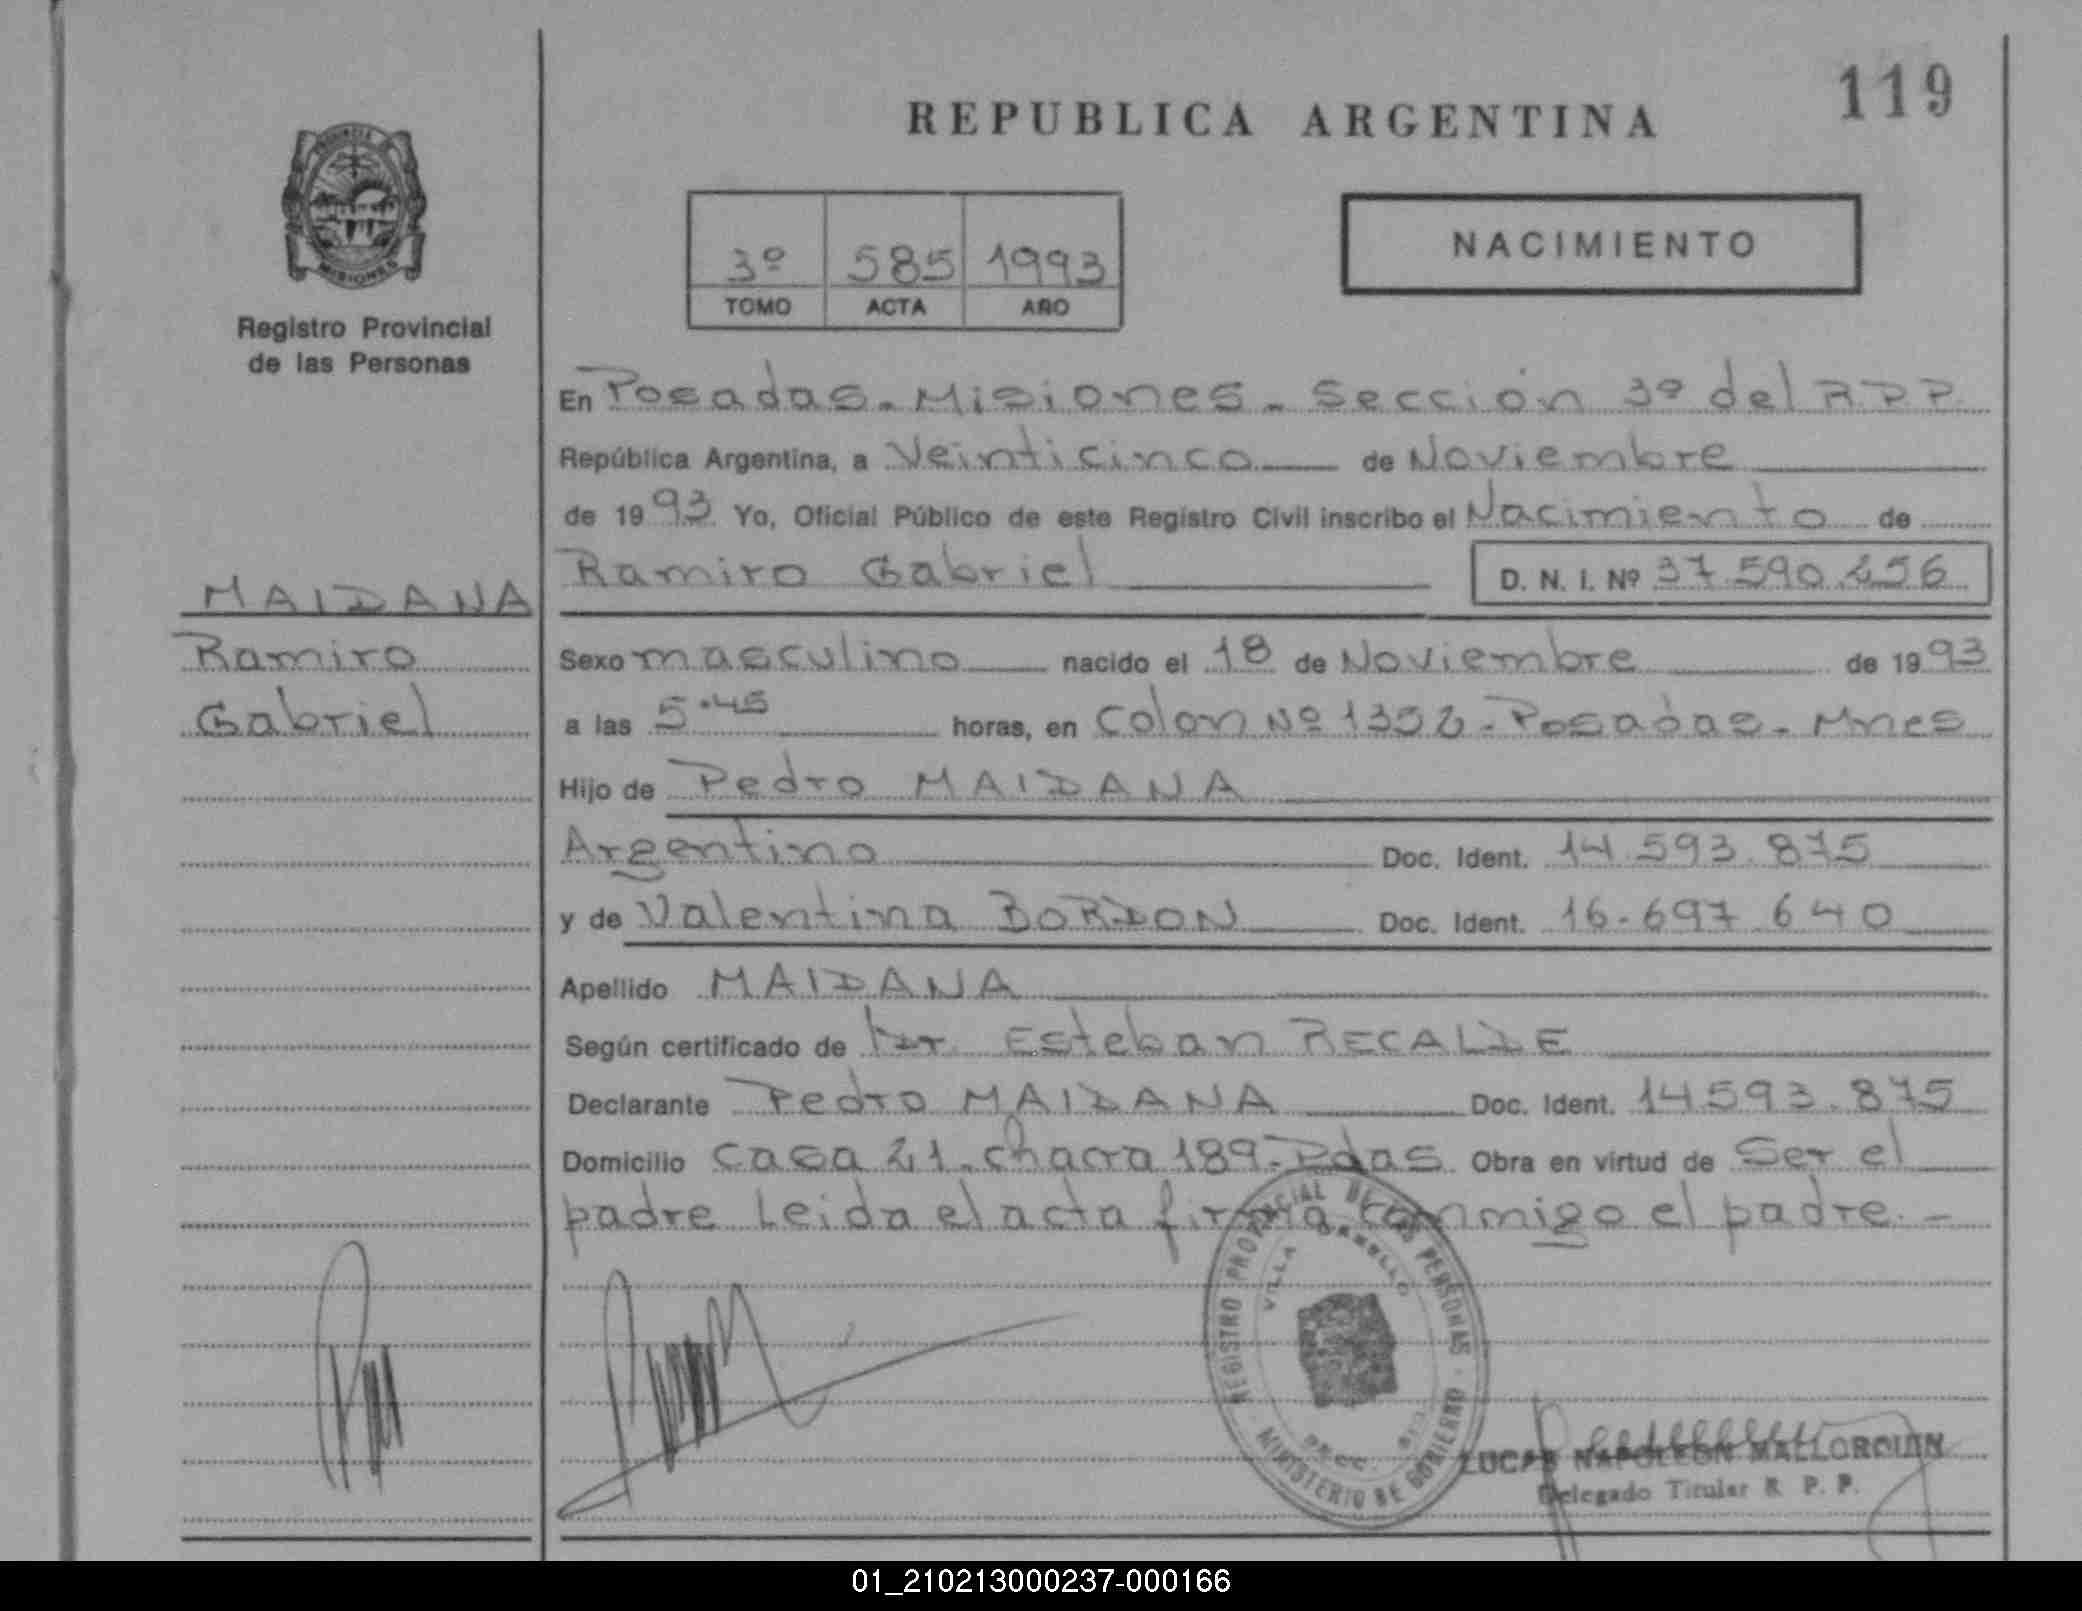 119
REPUBLICA ARGENTINA
PROVINCIA DE
MISIONES
Registro Provincial
de las Personas
3º 585 1993
TOMO ACTA AÑO
NACIMIENTO
En Posadas - Misiones - Sección 3º del R.P.P.
República Argentina, a Veinticinco de Noviembre
de 1993 Yo, Oficial Público de este Registro Civil inscribo el Nacimiento de
Ramiro Gabriel D. N. I. Nº 37.590.256
MAIDANA
Ramiro
Gabriel
Sexo masculino nacido el 18 de Noviembre de 1993
a las 5.45 horas, en Colon Nº 1352 - Posadas - Mnes
Hijo de Pedro MAIDANA
Argentino Doc. Ident. 14.593.875
y de Valentina BORDON Doc. Ident. 16.697.640
Apellido MAIDANA
Según certificado de Dr. Esteban RECALDE
Declarante Pedro MAIDANA Doc. Ident. 14593.875
Domicilio Casa 21 - chacra 189 - Pdas Obra en virtud de Ser el
padre Leida el acta firma conmigo el padre. -
REGISTRO PROVINCIAL DE LAS PERSONAS
VILLA CABELLO
SECC.
MINISTERIO DE GOBIERNO
LUCAS NAPOLEON MALLORQUIN
Delegado Titular R. P. P.
01_210213000237-000166